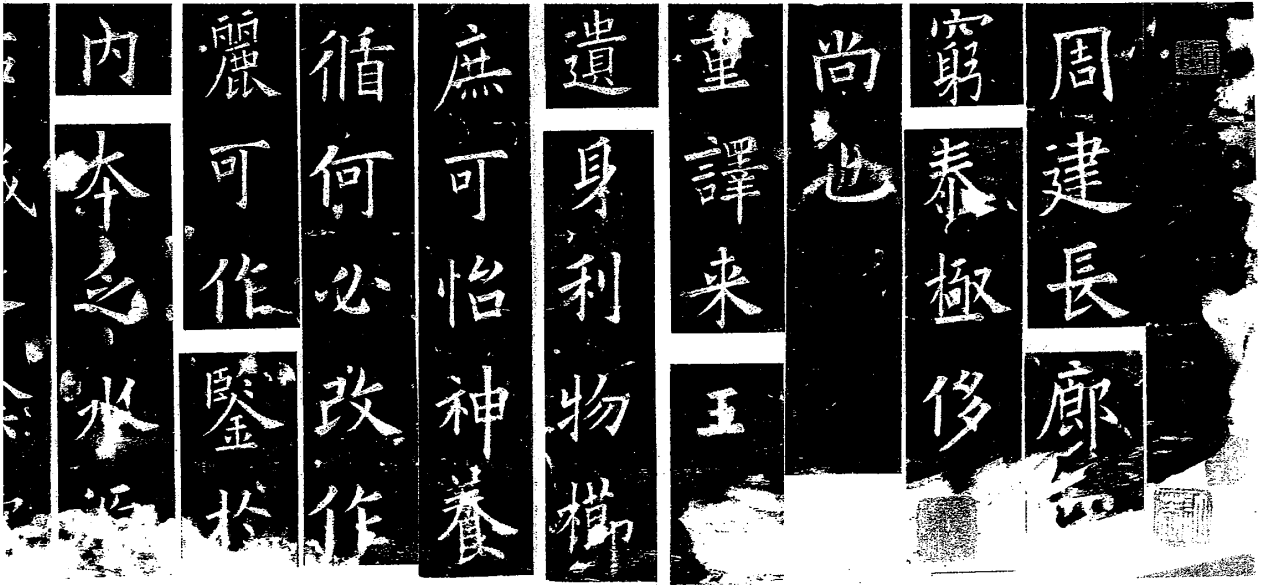 周建長廊
窮泰極侈
尚也
重譯来王
遺身利物櫛
庶可怡神養
循何必改作
麗可作鑒於
内本乏水源